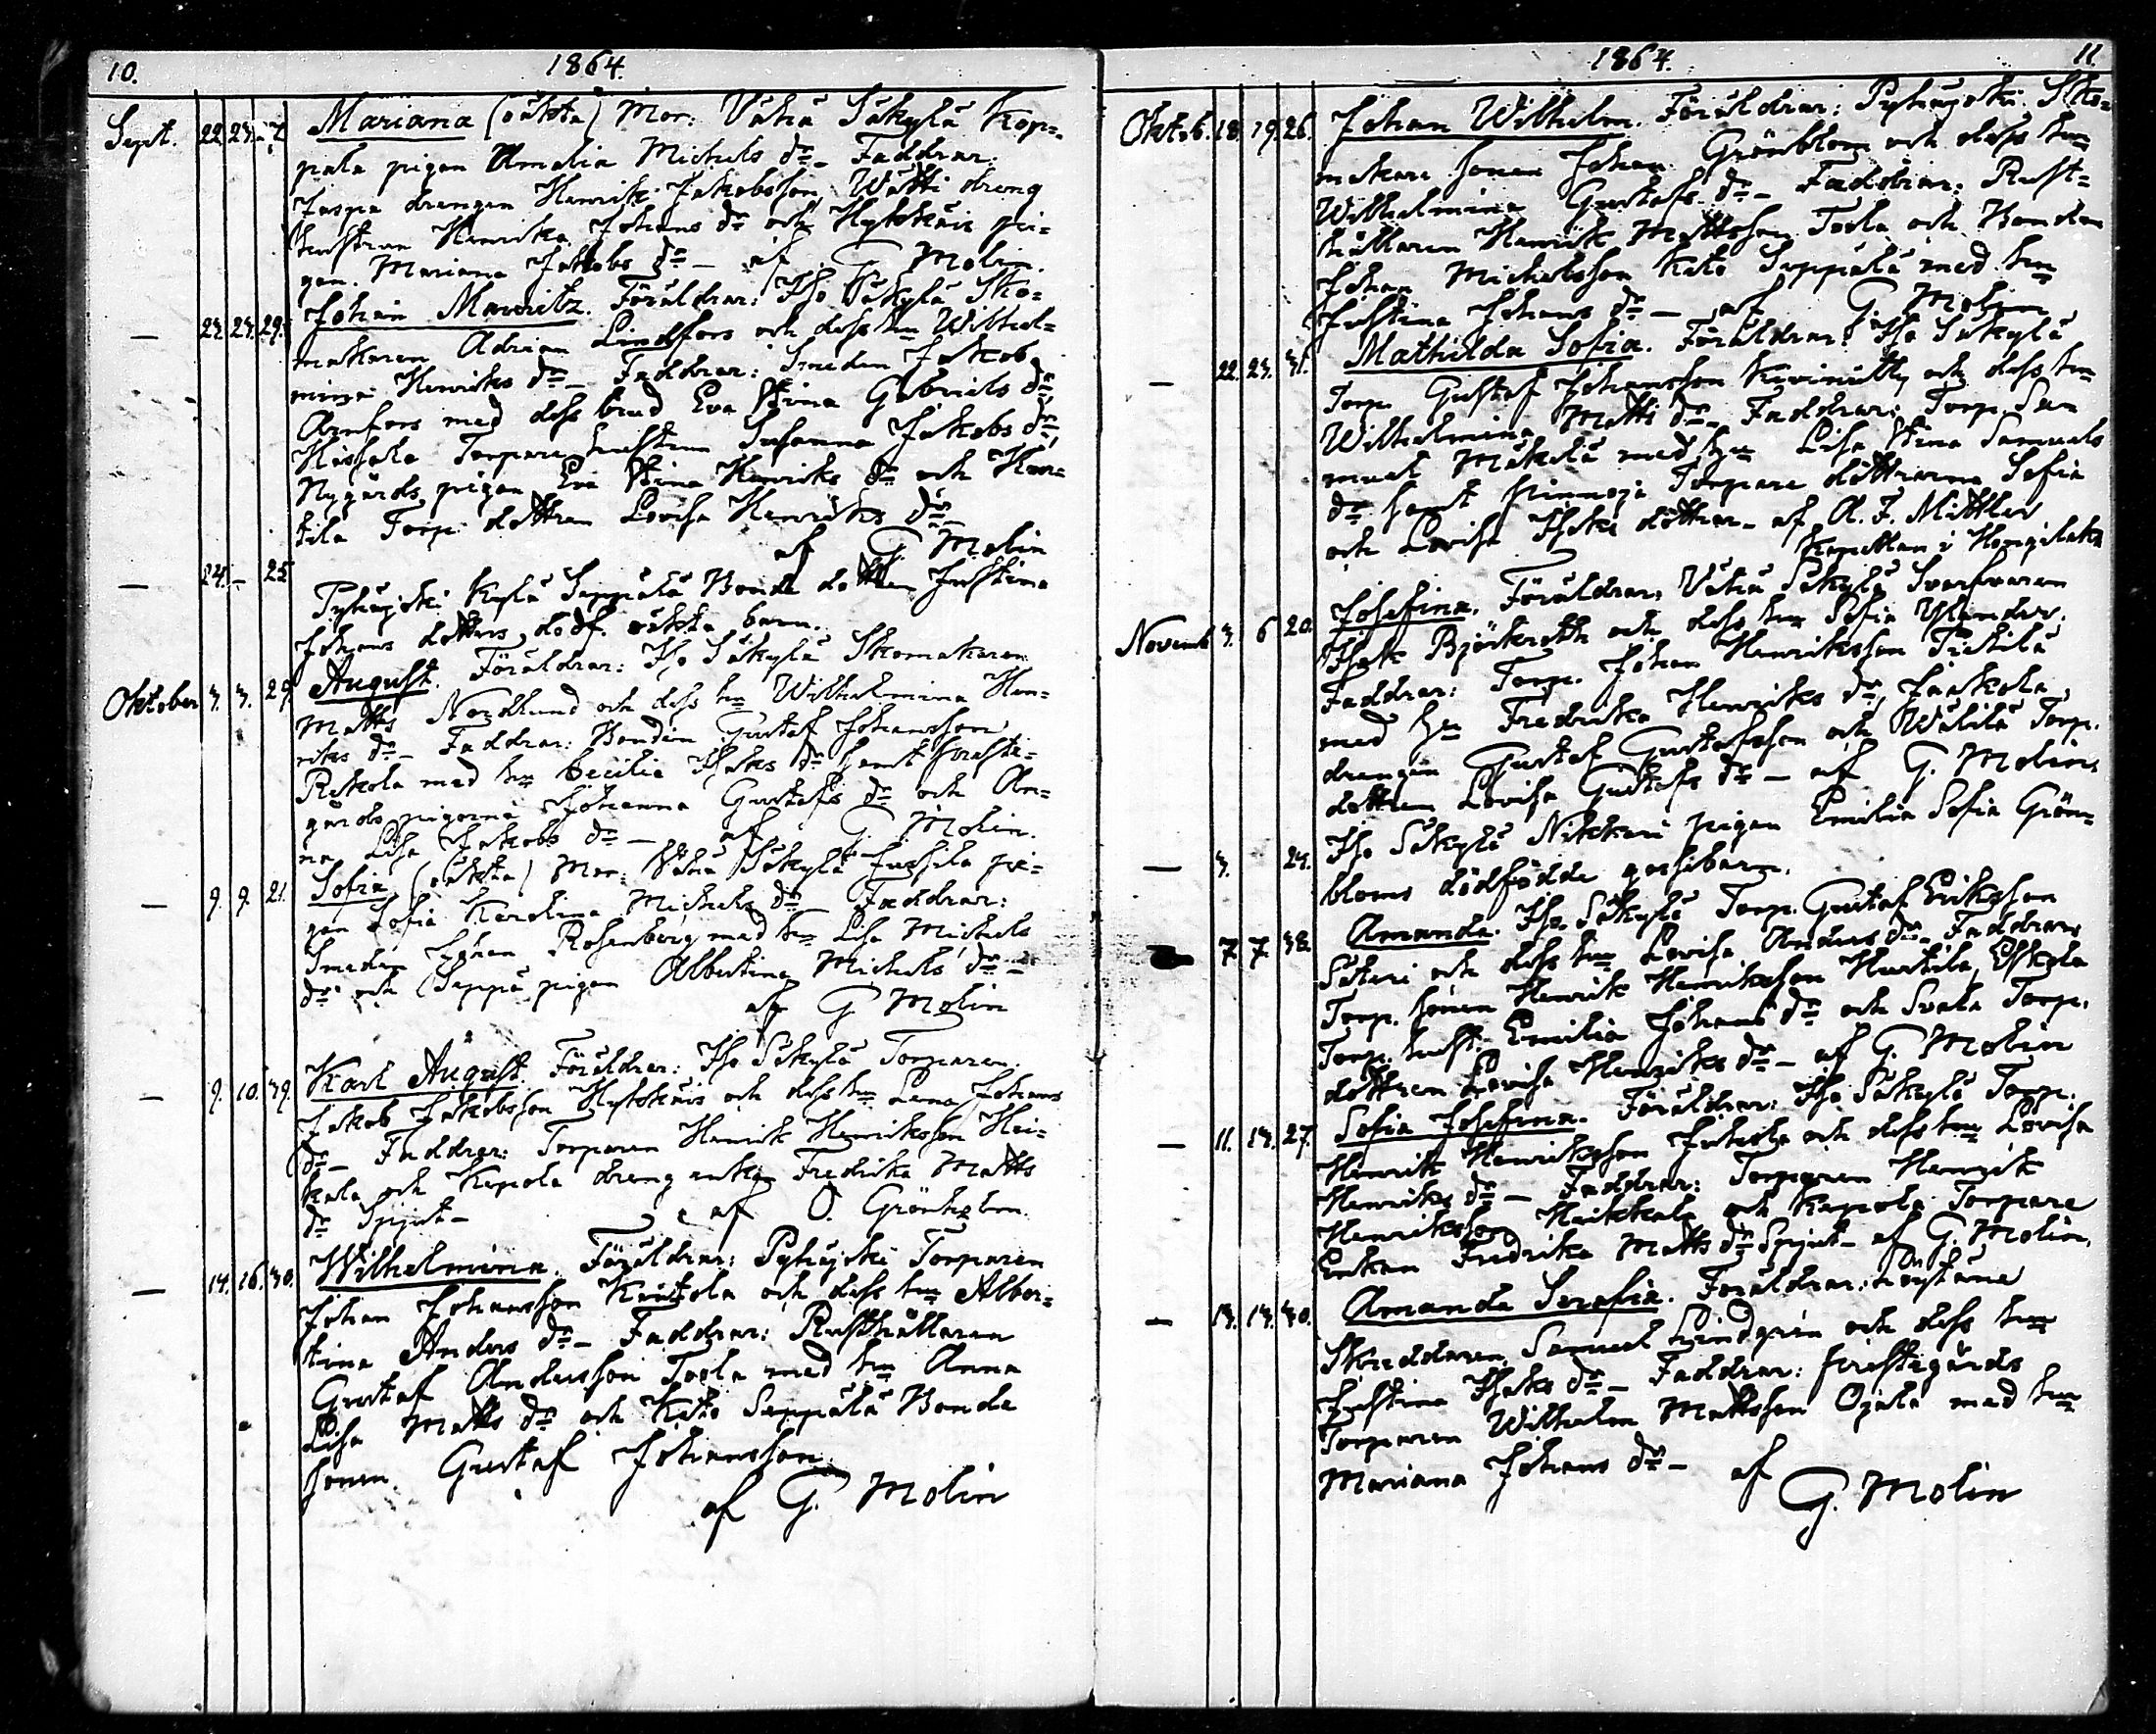 10. 1864.
Sept. 22. 23. 27. Mariana (oäkta) Mor: Vähä Säkylä Kop=
pala pigan Amalia Michels dr_ Faddrar:
Jaspa drengen Henrik Jakobsson, Wätti dreng
hustrun Henrika Johans dr och Hykkäis pi=
gan Mariana Jakobs dr _ af G Molin.
— 23. 23. 29. Johan Mauritz. Föräldrar: Iso Säkylä Sko=
makaren Adrian Lindfors och dess hu Wilhel=
mina Henriks dr_ Faddrar: Smeden Jakob
Arnfors med dess brud Eva Stina Gabriels dr,
Hissala Torpare hustrun Susanna Jakobs dr,
Nygårds pigan Eva Stina Henriks dr och Hur=
tila Torp. dottren Lovisa Henriks dr_
af G Molin
— 24. – 25 Pyhäjoki Kylä Seppälä Bonde dottren Justina
Johans dotters, dödf. oäkta barn.
Oktober 3. 3. 29 August. Föräldrar: Iso Säkylä Skomakaren
Matts Nordlund och dess hu Wilhelmina Hen=
riks dr_ Faddrar: Bonden Gustaf Johansson
Rekola med hu Cecilia Isaks dr samt Preste=
gårds pigorna Johanna Gustafs dr och An=
na Lisa Jakobs dr — af G. Molin.
— 9. 9. 21. Sofia (oäkta) Mor: Vähä Säkylä Jussila pi=
gan Sofia Karolina Michels dr_ Faddrar:
Smeden Johan Rosenberg med hu Lisa Michels
dr och Seppä pigan Albertina Michels dr_
af G Molin
— 9. 10. 39. Karl August. Föräldrar: Iso Säkylä Torparen
Jakob Jakobsson Hykkäis och dess hu Lena Johans
dr_ Faddrar: Torparen Henrik Henriksson Hei=
kala och Kepola dreng enkan Fredrika Matts
dr Spjut_ af O. Grönholm.
— 14. 16. 30. Wilhelmina. Föräldrar: Pyhäjoki Torparen
Johan Johansson Knutola och dess hu Alber=
tina Anders dr_ Faddrar: Rusthållaren
Gustaf Andersson Toola med hu Anna
Lisa Matts dr och Kato Seppälä Bonde
sonen Gustaf Johansson.
af G. Molin
1864. 11.
Oktob. 18. 19. 26. Johan Wilhelm. Föräldrar: Pyhäjoki Sko=
makare sonen Johan Grönblom och dess hu
Wilhelmina Gustafs dr_ Faddrar: Rust=
hållaren Henrik Mattsson Toola och Bonden
Johan Michelsson Kato Seppälä med hu
Justina Johans dr — af G. Molin
— 22. 23. 31. Mathilda Sofia. Föräldrar: Iso Säkylä
Torp. Gustaf Johansson Kivimitty och dess hu
Wilhelmina Matts dr_ Faddrar: Torp. Sa
muel Mäkelä med hu Lisa Stina Samuels
dr samt Torpare döttrarna Sofia
och Lovisa Isaks döttrar_ af A. F. Mittler
Kapellan i Hongilaks
Novemb 3. 6 20. Josefina. Föräldrar: Vähä Säkylä Svarfvaren
Isak Björkroth och dess hu Sofia Uplander.
Faddrar: Torp. Johan Henriksson Pietilä
med hu Fredrika Henriks dr, Jaakola
drengen Gustaf Gustafsson och Wälilä Torp.
dottren Lovisa Gustafs dr — af G. Molin.
— 3. 24. Iso Säkylä Nikkari pigan Emilia Sofia Grön=
bloms dödfödde gossebarn.
7 7 38. Amanda. Iso Säkylä Torp. Gustaf Eriksson
Sikeri och dess hu Lovisa Anders dr_ Faddrar:
Torp. sonen Henrik Henriksson Hurtila, Eskola
Torp. hustr. Emilia Johans dr och Svala Torp.
dottren Lovisa Henriks dr — af G. Molin
— 11. 13. 27. Sofia Josefina. Föräldrar: Iso Säkylä Torp.
Henrik Henriksson Juhola och dess hu Lovisa
Henriks dr — Faddrar: Torparen Henrik
Henriksson Heikkala och Kepola Torpare
Enkan Fredrika Matts dr Spjut_ af G. Molin.
— 13. 13. 30. Amanda Serafia. Föräldrar:
Skräddaren Samuel Lindgren och dess hu
Justina Isaks dr_ Faddrar: Prestegårds
Torparen Wilhelm Mattsson Ojala med hu
Mariana Johans dr_ af
G. Molin